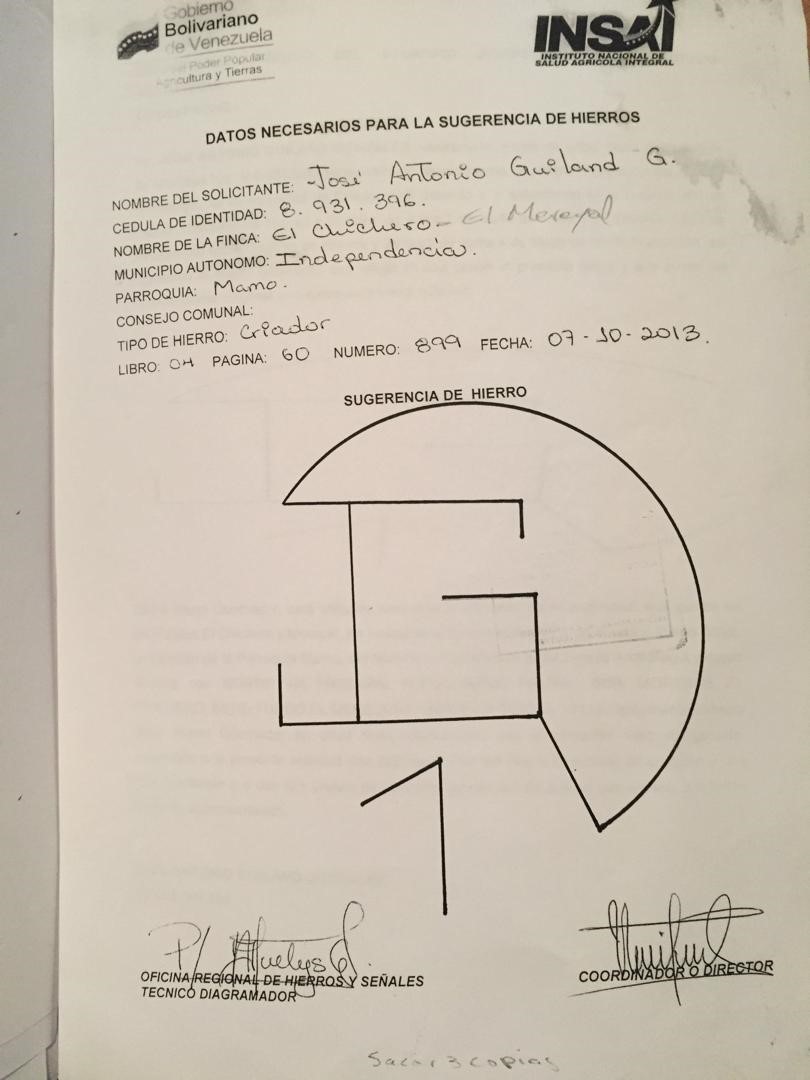 Gobierno
Bolivariano
de Venezuela
Poder Popular
Agricultura y Tierras
INSAI
INSTITUTO NACIONAL DE
SALUD AGRICOLA INTEGRAL
DATOS NECESARIOS PARA LA SUGERENCIA DE HIERROS
NOMBRE DEL SOLICITANTE: José Antonio Guiland G.
CEDULA DE IDENTIDAD: 8.931.396.
NOMBRE DE LA FINCA: El Chichero - El Mereyal
MUNICIPIO AUTONOMO: Independencia.
PARROQUIA: Mamo.
CONSEJO COMUNAL:
TIPO DE HIERRO: Criador
LIBRO: 04 PAGINA: 60 NUMERO: 899 FECHA: 07-10-2013.
SUGERENCIA DE HIERRO
P/
OFICINA REGIONAL DE HIERROS Y SEÑALES
TECNICO DIAGRAMADOR
COORDINADOR O DIRECTOR
Sacar 3 copias